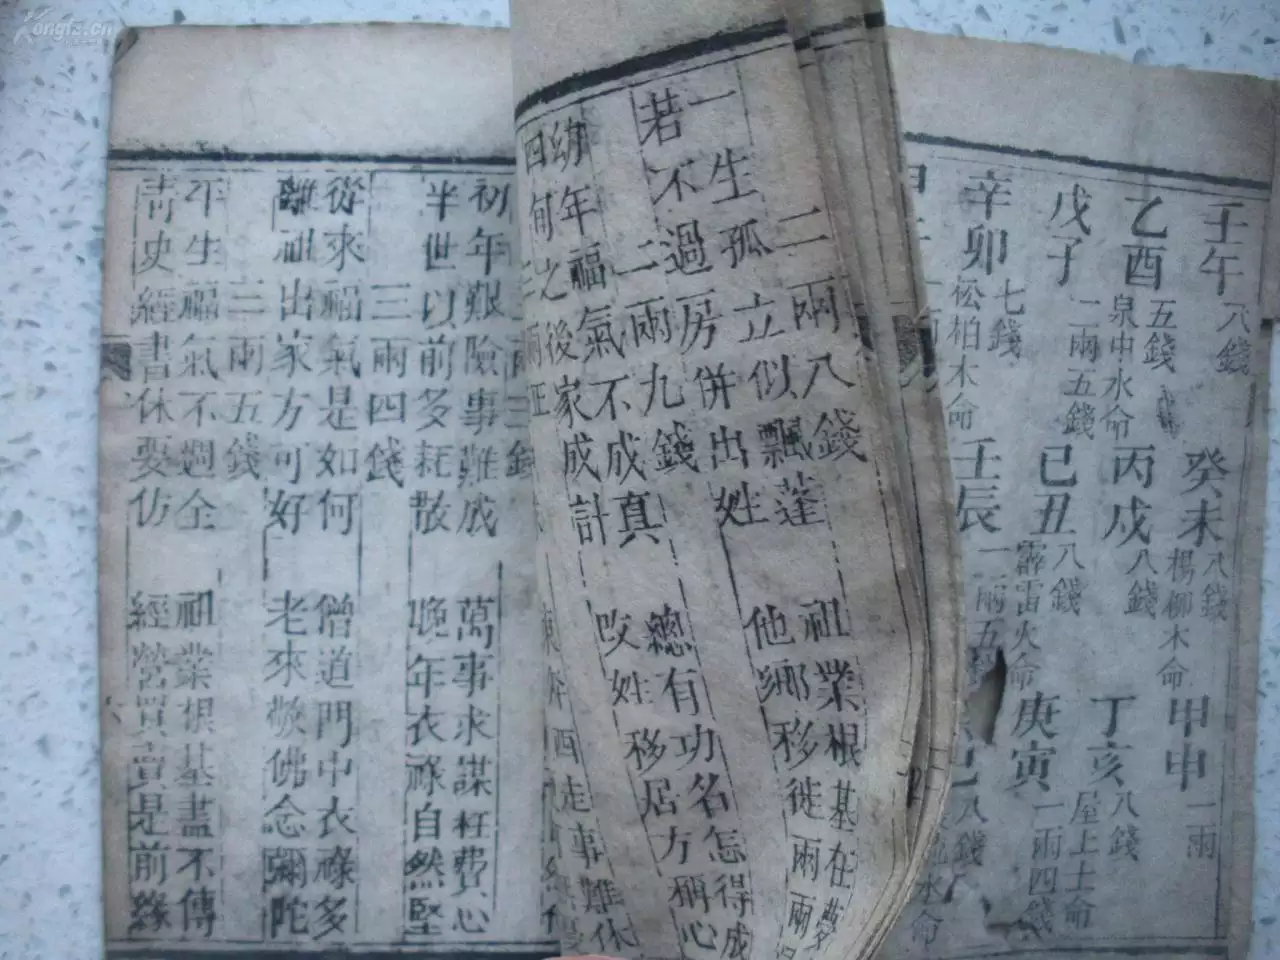 壬午 八錢
癸未 八錢 楊柳木命
甲申 一兩
乙酉 五錢 泉中水命
丙戌 八錢
丁亥 八錢 屋上土命
戊子 一兩五錢
己丑 八錢 霹雷火命
庚寅 一兩四錢
辛卯 七錢 松柏木命
壬辰 一兩五
巳 八錢 水命
二兩八錢
一生孤立似飄蓬 祖業根基在夢
若不過房併出姓 他鄉移徙兩兩
二兩九錢
幼年福氣不成真 總有功名怎得成
四旬之後家成計 改姓移居方稱心
三兩正
東奔西走事難休
三兩三錢
初年艱險事難成 萬事求謀枉費心
半世以前多耗散 晚年衣祿自然堅
三兩四錢
從來福氣是如何 僧道門中衣祿多
離祖出家方可好 老來敬佛念彌陀
三兩五錢
平生福氣不週全 祖業根基盡不傳
青史經書休要仿 經營買賣是前緣